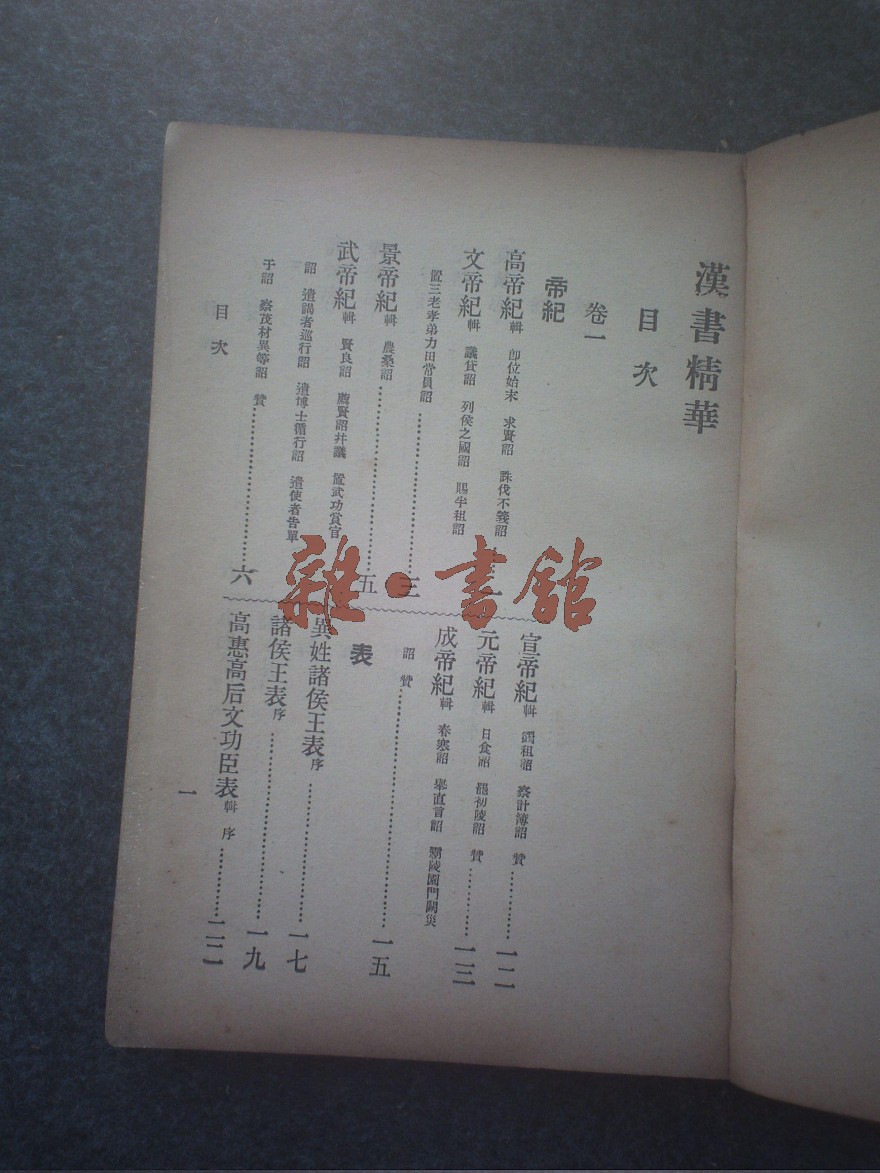 漢書精華
目次
卷一
帝紀
高帝紀輯 卽位始末 求賢詔 誅伐不義詔
文帝紀輯 議貸詔 列侯之國詔 賜半租詔
置三老孝弟力田常員詔……三
景帝紀輯 農桑詔……五
武帝紀輯 賢良詔 薦賢詔幷議 置武功賞官
詔 遣謁者巡行詔 遣博士循行詔 遣使者告單
于詔 察茂材異等詔 贊……六
宣帝紀輯 租詔 察計簿詔 贊……一二
元帝紀輯 日食詔 罷初陵詔 贊……一三
成帝紀輯 春寒詔 舉直言詔 陵園門闕災
詔 贊……一五
表
異姓諸侯王表序……一七
諸侯王表序……一九
高惠高后文功臣表輯 序……二二
目次
一
雜·書館